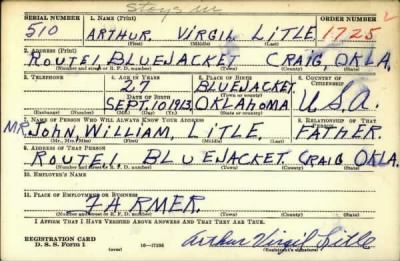 Stays in
SERIAL NUMBER 1. NAME (Print) ORDER NUMBER
510 ARTHUR. VIRGIL LITLE. 1725 2
(First) (Middle) (Last)
2. ADDRESS (Print)
ROUTE 1, BLUEJACKET CRAIG, OKLA,
(Number and street or R. F. D. number) (Town) (County) (State)
3. TELEPHONE 4. AGE IN YEARS 5. PLACE OF BIRTH 6. COUNTRY OF CITIZENSHIP
27 BLUEJACKET.
DATE OF BIRTH (Town or county)
SEPT, 10 1913 OKLAHOMA U.S.A.
(Exchange) (Number) (Mo.) (Day) (Yr.) (State or country)
7. NAME OF PERSON WHO WILL ALWAYS KNOW YOUR ADDRESS 8. RELATIONSHIP OF THAT PERSON
MR. JOHN, WILLIAM, LITLE, FATHER.
(Mr., Mrs., Miss) (First) (Middle) (Last)
9. ADDRESS OF THAT PERSON
ROUTE 1 BLUEJACKET. CRAIG OKLA.
(Number and street or R. F. D. number) (Town) (County) (State)
10. EMPLOYER'S NAME
11. PLACE OF EMPLOYMENT OR BUSINESS
FARMER.
(Number and street or R. F. D. number) (Town) (County) (State)
I AFFIRM THAT I HAVE VERIFIED ABOVE ANSWERS AND THAT THEY ARE TRUE.
REGISTRATION CARD
D. S. S. Form 1 16—17105 Arthur Virgil Litle
(Registrant's signature)